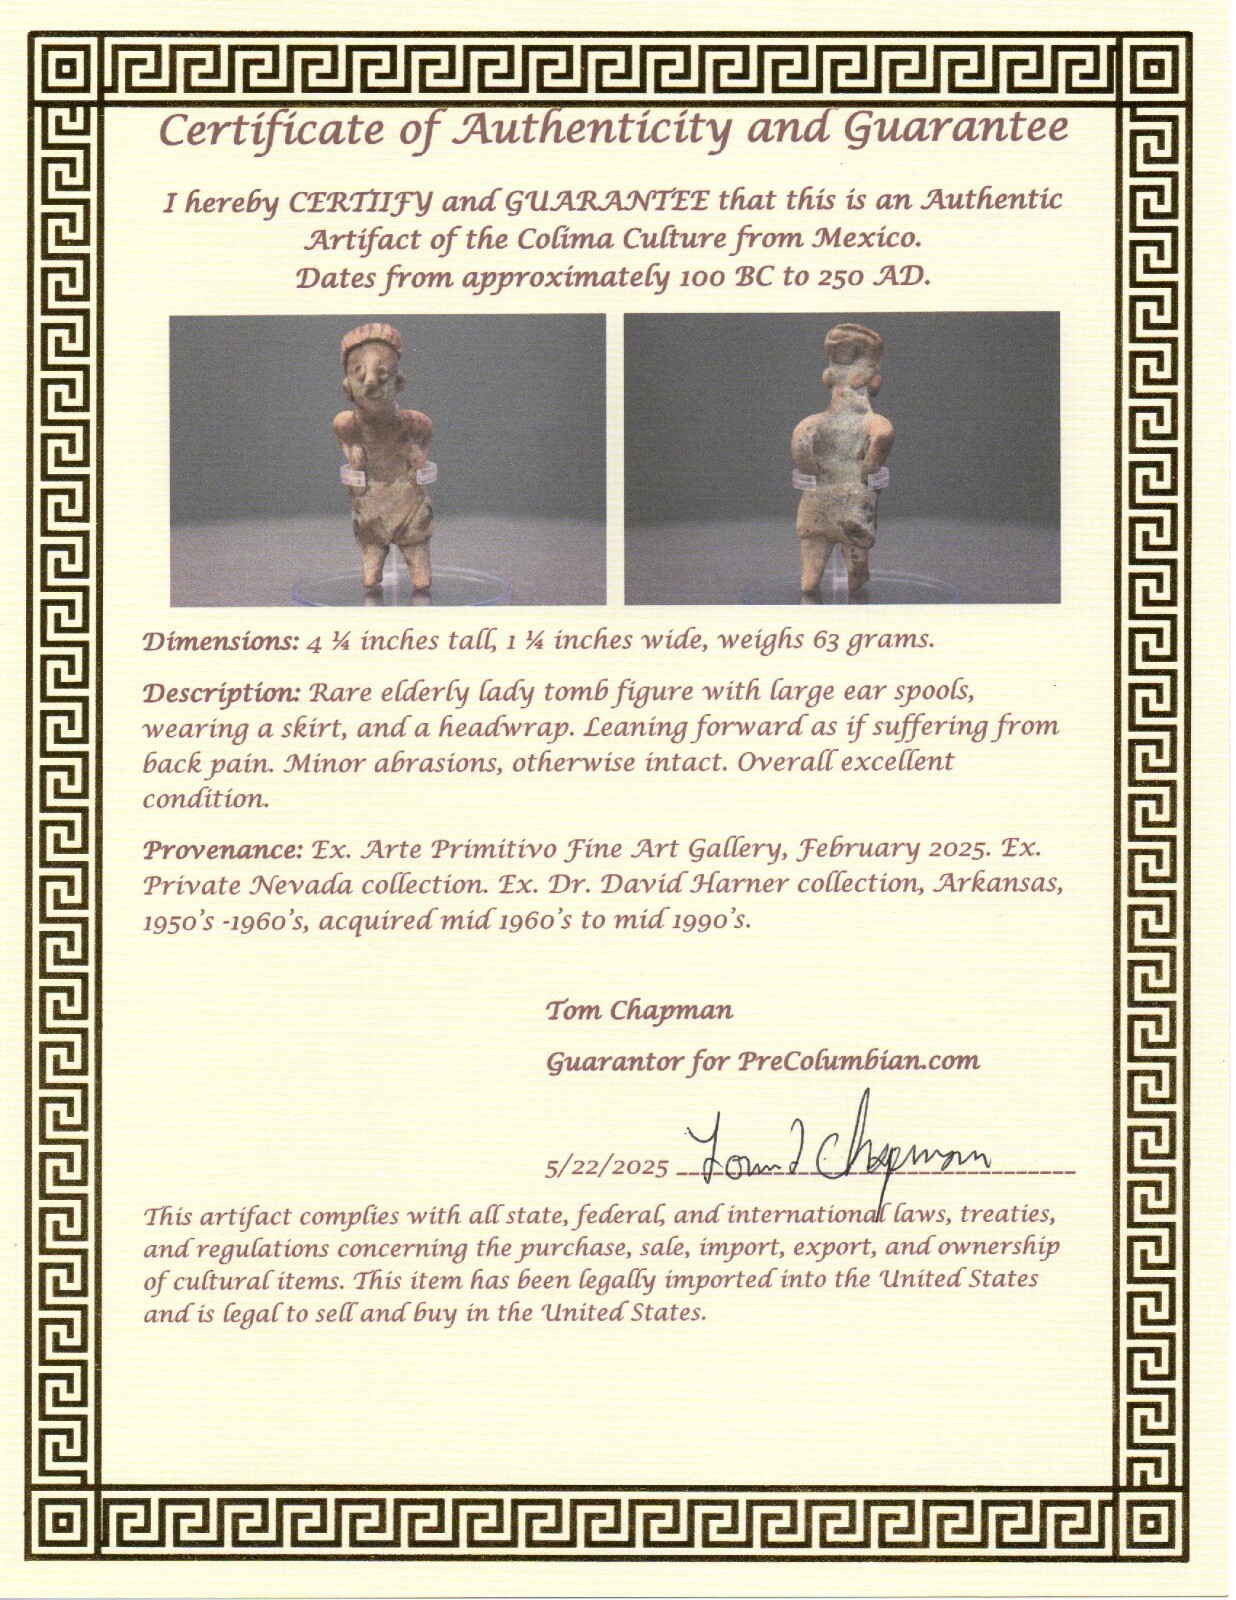 Certificate of Authenticity and Guarantee
I hereby CERTIIFY and GUARANTEE that this is an Authentic
Artifact of the Colima Culture from Mexico.
Dates from approximately 100 BC to 250 AD.
Dimensions: 4 ¼ inches tall, 1 ¼ inches wide, weighs 63 grams.
Description: Rare elderly lady tomb figure with large ear spools,
wearing a skirt, and a headwrap. Leaning forward as if suffering from
back pain. Minor abrasions, otherwise intact. Overall excellent
condition.
Provenance: Ex. Arte Primitivo Fine Art Gallery, February 2025. Ex.
Private Nevada collection. Ex. Dr. David Harner collection, Arkansas,
1950's -1960's, acquired mid 1960's to mid 1990's.
Tom Chapman
Guarantor for PreColumbian.com
5/22/2025 Chapman
This artifact complies with all state, federal, and international laws, treaties,
and regulations concerning the purchase, sale, import, export, and ownership
of cultural items. This item has been legally imported into the United States
and is legal to sell and buy in the United States.